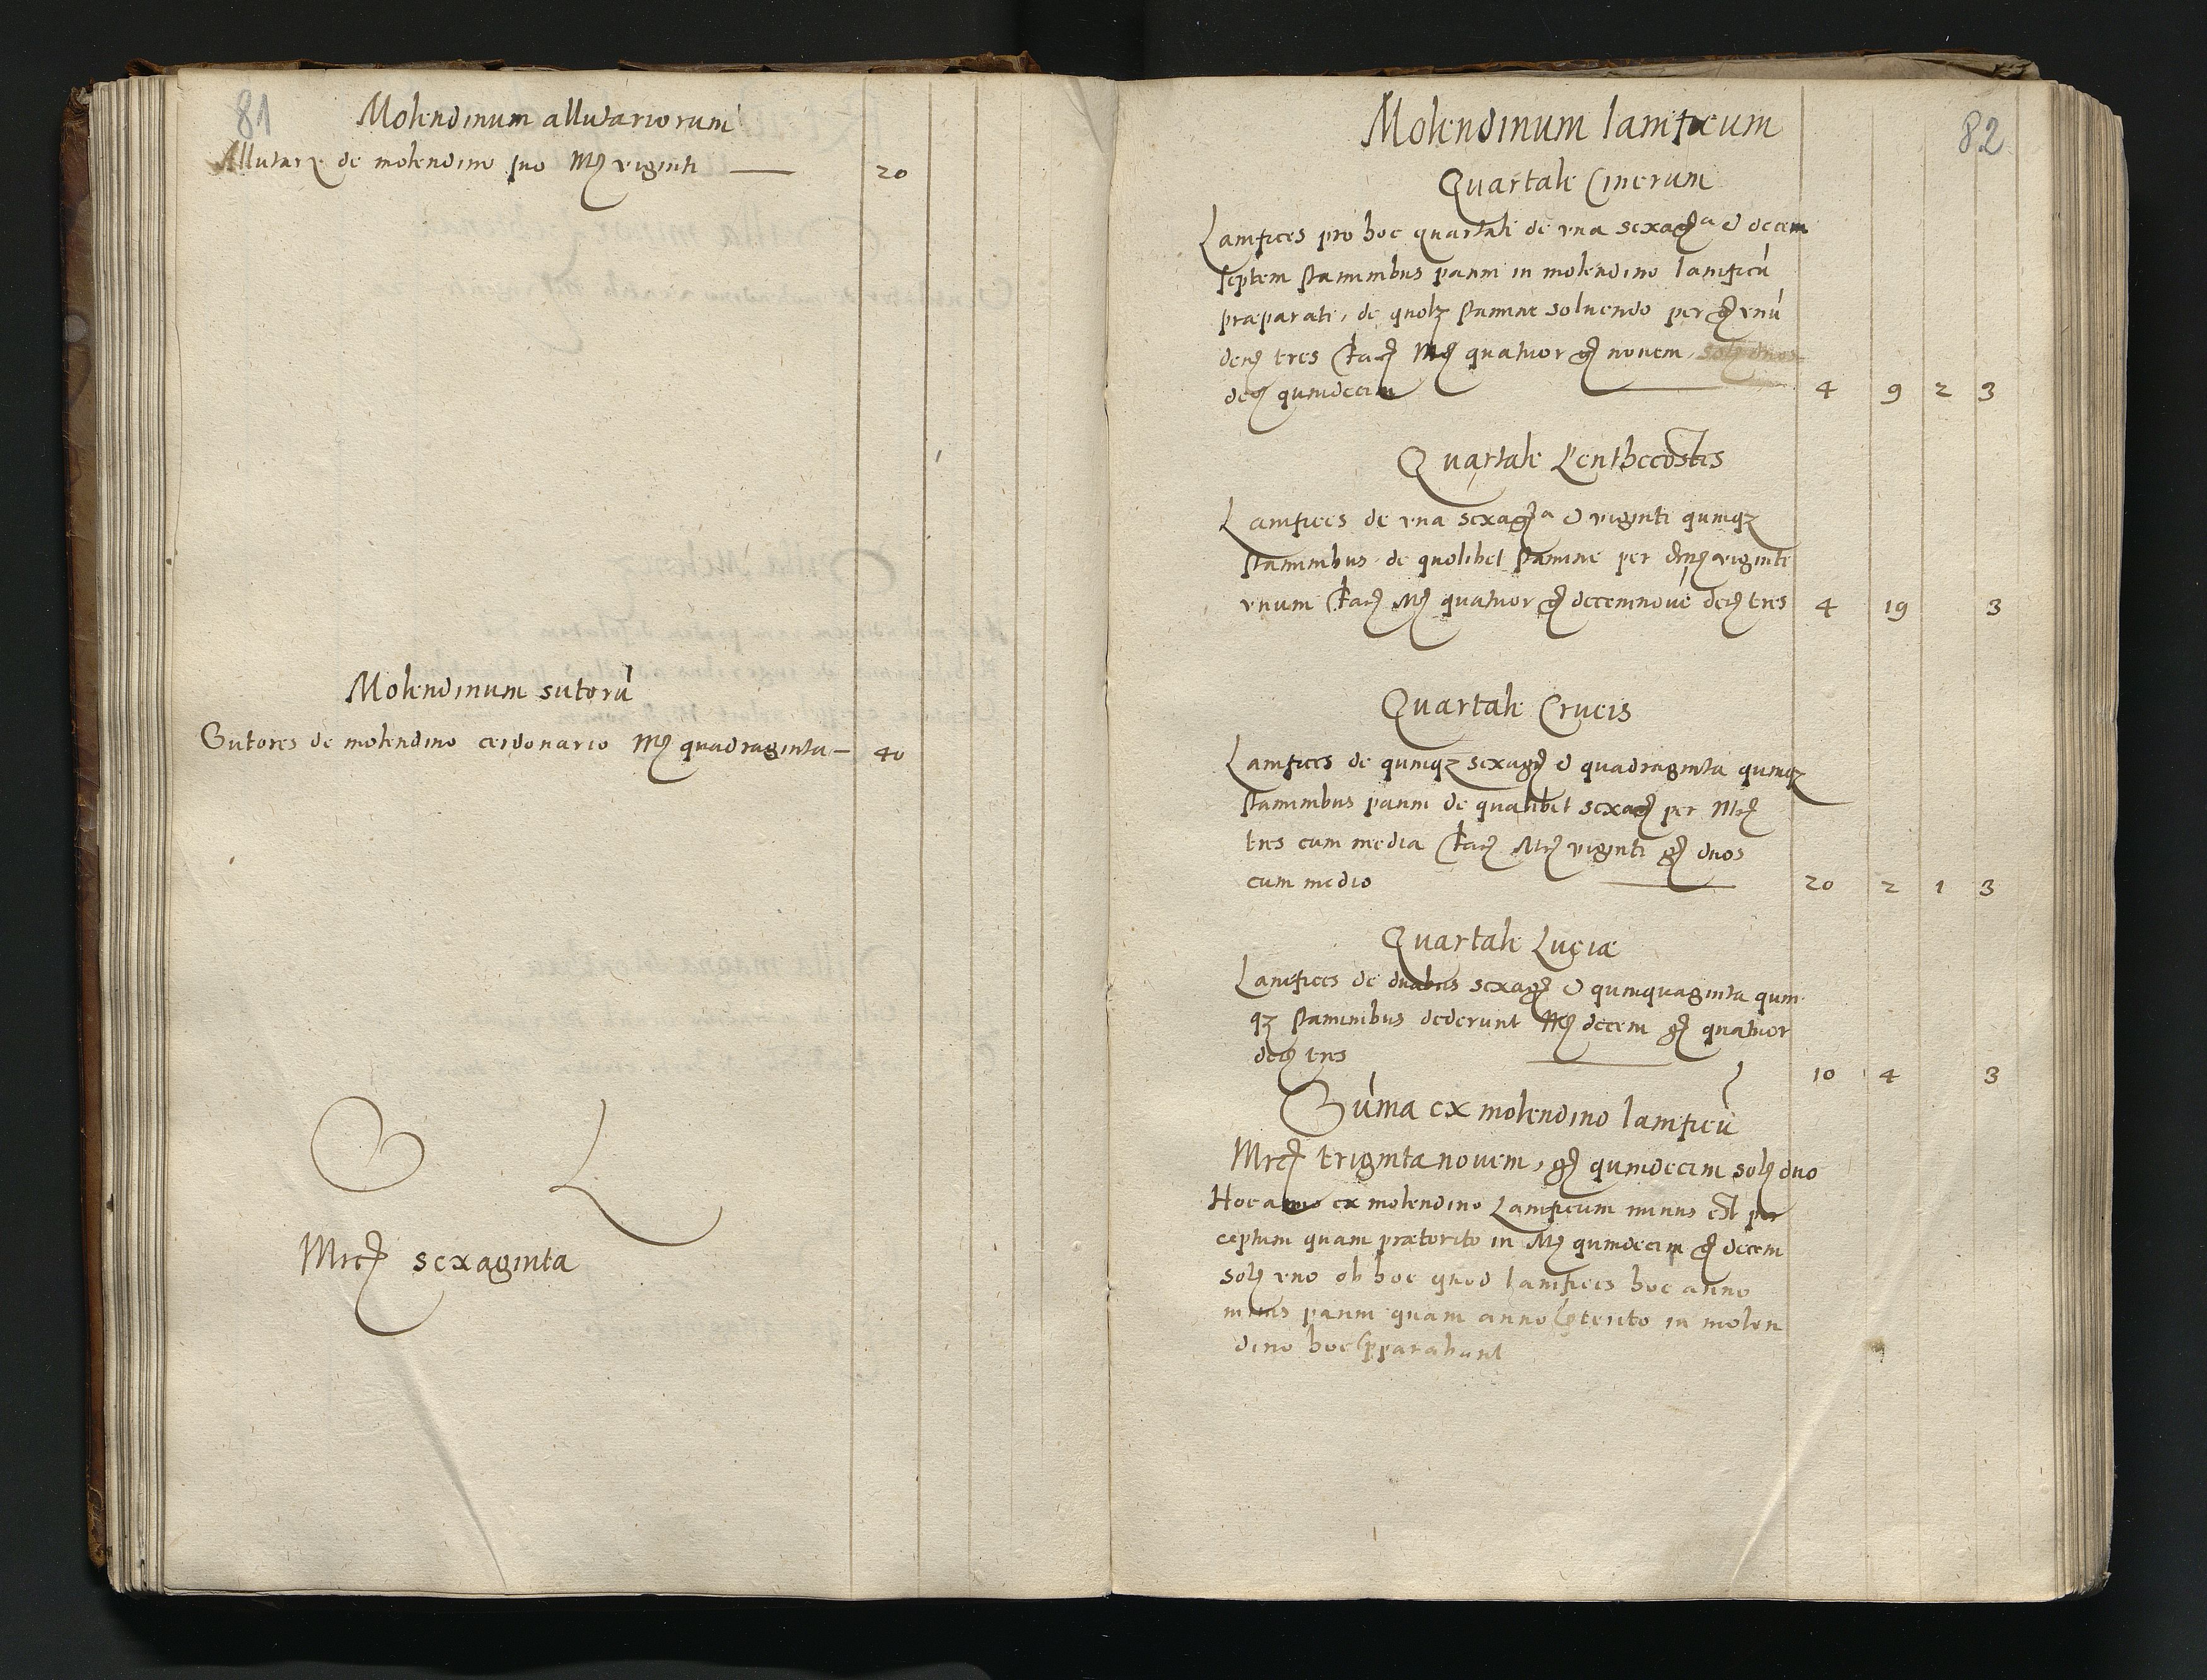 81
Molendinum allutariorum
Allutarȝ de molendino suo Mrȝ viginti — 20
Molendinum sutorū
Sutores de molendino cerdonario Mrȝ quadraginta — 40
S L
Mrcȝ sexaginta
82
Molendinum lanificum
Quartale Cinerum
Lanifices pro hoc quartali de vna sexagᵃ & decem
septem staminibus panni in molendino lanificū
præparati, de quolȝ stamine soluendo per gȝ vnū
denȝ tres facȝ Mrȝ quatuor gȝ novem,
deȝ quindecim — 4 9 2 3
Quartale Penthecostes
Lanifices de vna sexagᵃ & viginti quinqȝ
staminibus de quolibet stamine per denȝ viginti
vnum facȝ Mȝ quatuor gȝ decemnovē deȝ tres 4 19 3
Quartale Crucis
Lanifices de quinqȝ sexagȝ & quadraginta quinqȝ
staminibus panni de qualibet sexagȝ per Mrȝ
tres cum media facȝ Mrȝ viginti gȝ duos
cum medio — 20 2 1 3
Quartale Luciæ
Lanifices de duabus sexagȝ & quinquaginta quin
qȝ staminibus dederunt Mȝ decem gȝ quatuor
deȝ tres — 10 4 3
Sūma ex molendino lanificū
Mrcȝ triginta novem, gȝ quindecim solȝ duo
Hoc anno ex molendino Lanificum minus est per
ceptum quam prætorito in Mȝ quindecim gȝ decem
solȝ vno ob hoc quod lanifices hoc anno
minus panni quam anno pterito in molen
dino hoc pparabunt